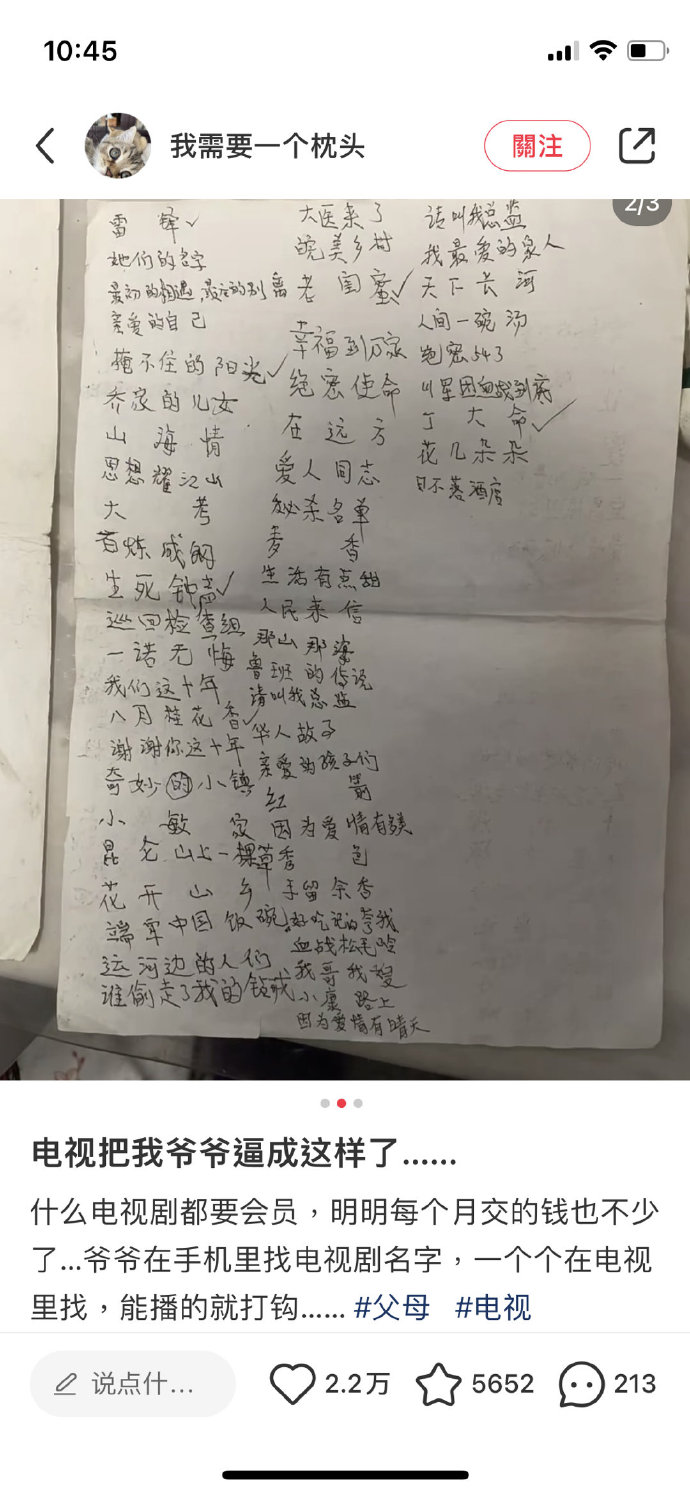 10:45
我需要一个枕头
關注
2/3
雷 锋✓
她们的名字
最初的相遇 最后的别离
亲爱的自己
掩不住的阳光✓
乔家的儿女
山 海 情
思想耀江山
大 考
百炼成钢
生死钟声✓
巡回检查组
一诺无悔
我们这十年
八月桂花香✓
谢谢你这十年
奇妙的小镇
小 敏 家
昆仑山上一棵草
花开山乡
端牢中国饭碗
运河边的人们
谁偷走了我的锁戒
大医来了
皖美乡村
老闺蜜✓
幸福到万家
绝密使命
在远方
爱人同志
秘杀名单
麦 香
生活有点甜
人民来信
那山那海
鲁班的传说
请叫我总监
华人故子
亲爱的孩子们
红 箭
因为爱情有
秀 色
手留余香
好吃记的
血战松毛岭
我哥我嫂
小康路上
因为爱情有晴天
请叫我总监
我最爱的家人
天下长河
人间一碗汤
绝密543
叫星团血战到底
丁大命✓
花儿朵朵
日不落酒店
电视把我爷爷逼成这样了......
什么电视剧都要会员，明明每个月交的钱也不少
了...爷爷在手机里找电视剧名字，一个个在电视
里找，能播的就打钩...... #父母 #电视
说点什...
2.2万
5652
213